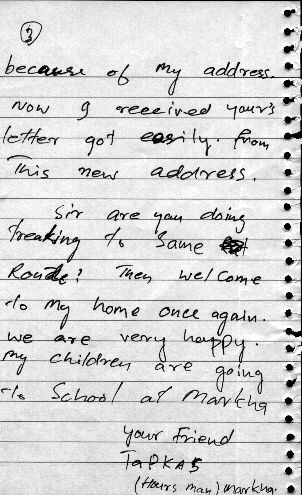 3
because of my address.
Now I received your's
letter got easily. from
This new address.
Sir are you doing
treaking to Same
Route? Then welcome
to my home once again.
we are very happy.
my children are going
to School at Markha
your Friend
TaPKAS
(Hours man) markha.